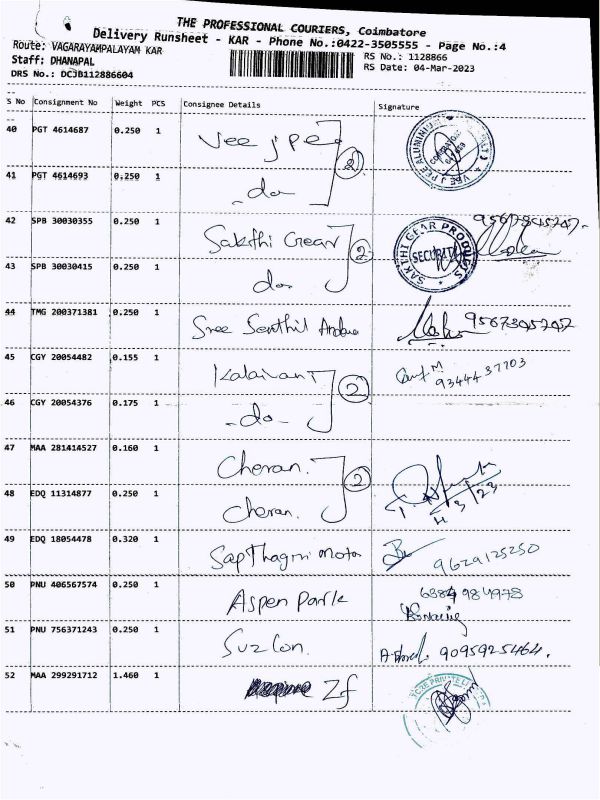 THE PROFESSIONAL COURIERS, Coimbatore
Delivery Runsheet - KAR - Phone No.:0422-3505555 - Page No.:4
Route: VAGARAYAMPALAYAM KAR
RS No.: 1128866
Staff: DHANAPAL
RS Date: 04-Mar-2023
DRS No.: DCJB112886604
S No Consignment No Weight PCS Consignee Details Signature
40 PGT 4614687 0.250 1 Vee j pee 2
41 PGT 4614693 0.250 1 - do -
42 SPB 30030355 0.250 1 Sakthi Gear 2 SAKTHI GEAR PRODUCTS SECURITY
43 SPB 30030415 0.250 1 do
44 TMG 200371381 0.250 1 Sree Senthil
45 CGY 20054482 0.155 1 Kalaivani 2
46 CGY 20054376 0.175 1 - do -
47 MAA 281414527 0.160 1 Cheran. 2
48 EDQ 11314877 0.250 1 Cheran. 4/3/23
49 EDQ 18054478 0.320 1 Sapthagiri Motor 9629125250
50 PNU 406567574 0.250 1 Aspen Park
51 PNU 756371243 0.250 1 Suzlon. 9095925464.
52 MAA 299291712 1.460 1 Zf